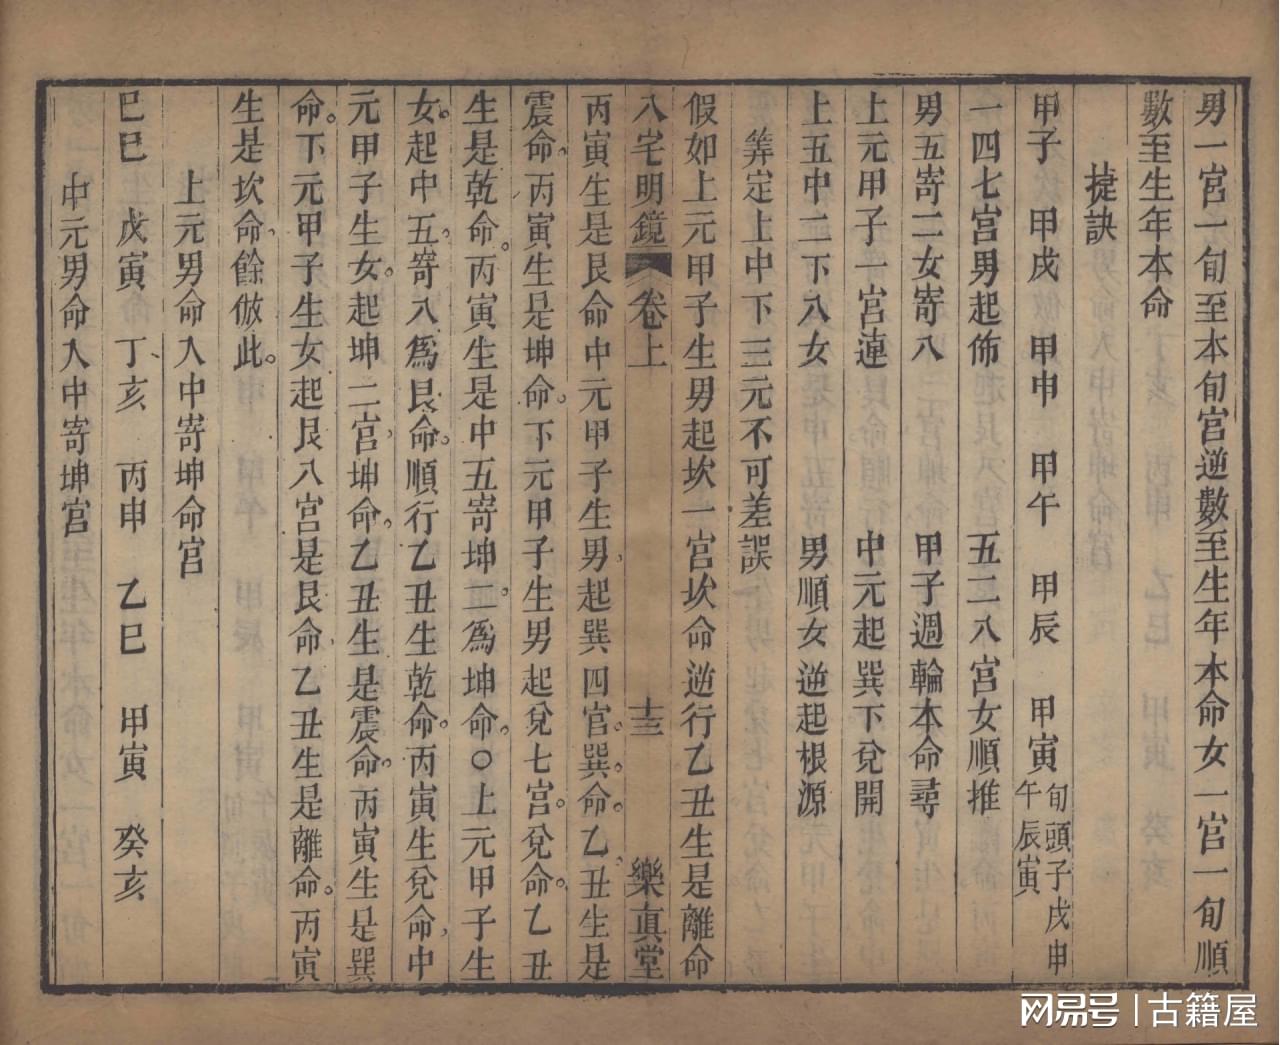 男一宮一旬至本旬宮逆數至生年本命女一宮一旬順
數至生年本命
捷訣
甲子 甲戌 甲申 甲午 甲辰 甲寅 旬頭子戌申
午辰寅
一四七宮男起佈 五二八宮女順推
男五寄二女寄八 甲子週輪本命尋
上元甲子一宮連 中元起巽下兌開
上五中二下八女 男順女逆起根源
筭定上中下三元不可差誤
假如上元甲子生男起坎一宮坎命逆行乙丑生是離命
八宅明鏡 卷上 十三 樂真堂
丙寅生是艮命中元甲子生男起巽四宮巽命乙丑生是
震命丙寅生是坤命下元甲子生男起兌七宮兌命乙丑
生是乾命丙寅生是中五寄坤二爲坤命○上元甲子生
女起中五寄八爲艮命順行乙丑生乾命丙寅生兌命中
元甲子生女起坤二宮坤命乙丑生是震命丙寅生是巽
命下元甲子生女起艮八宮是艮命乙丑生是離命丙寅
生是坎命餘倣此
上元男命入中寄坤命宮
己巳 戊寅 丁亥 丙申 乙巳 甲寅 癸亥
中元男命入中寄坤宮
网易号 | 古籍屋